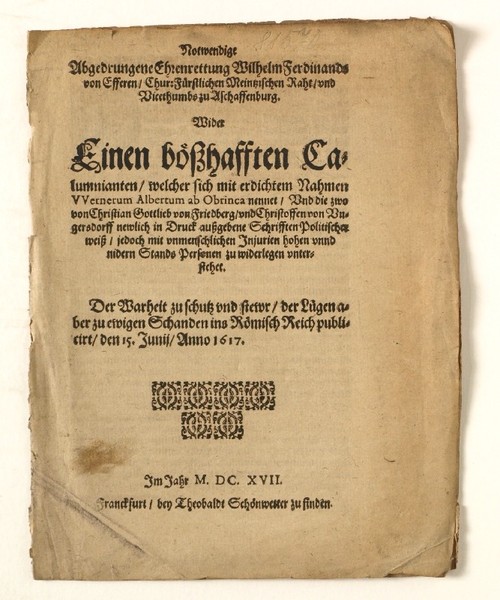 Notwendige
Abgedrungene Ehrenrettung Wilhelm Ferdinands
von Efferen / Chur: Fürstlichen Meintzischen Raht / vnd
Vicethumbs zu Aschaffenburg.
Wider
Einen bößhafften Ca-
lumnianten / welcher sich mit erdichtem Nahmen
VVernerum Albertum ab Obrinca nennet / Vnd die zwo
von Christian Gottlieb von Friedberg / vnd Christoffen von Vn-
gersdorff newlich in Druck außgebene Schrifften Politischer
weiß / jedoch mit vnmenschlichen Injurien hohen vnnd
nidern Stands Personen zu widerlegen vnter-
stehet.
Der Warheit zu schutz vnd stewr / der Lügen a-
ber zu ewigen Schanden ins Römisch Reich publi-
cirt / den 15. Junij / Anno 1617.
Im Jahr M. DC. XVII.
Franckfurt / bey Theobaldt Schönwetter zu finden.